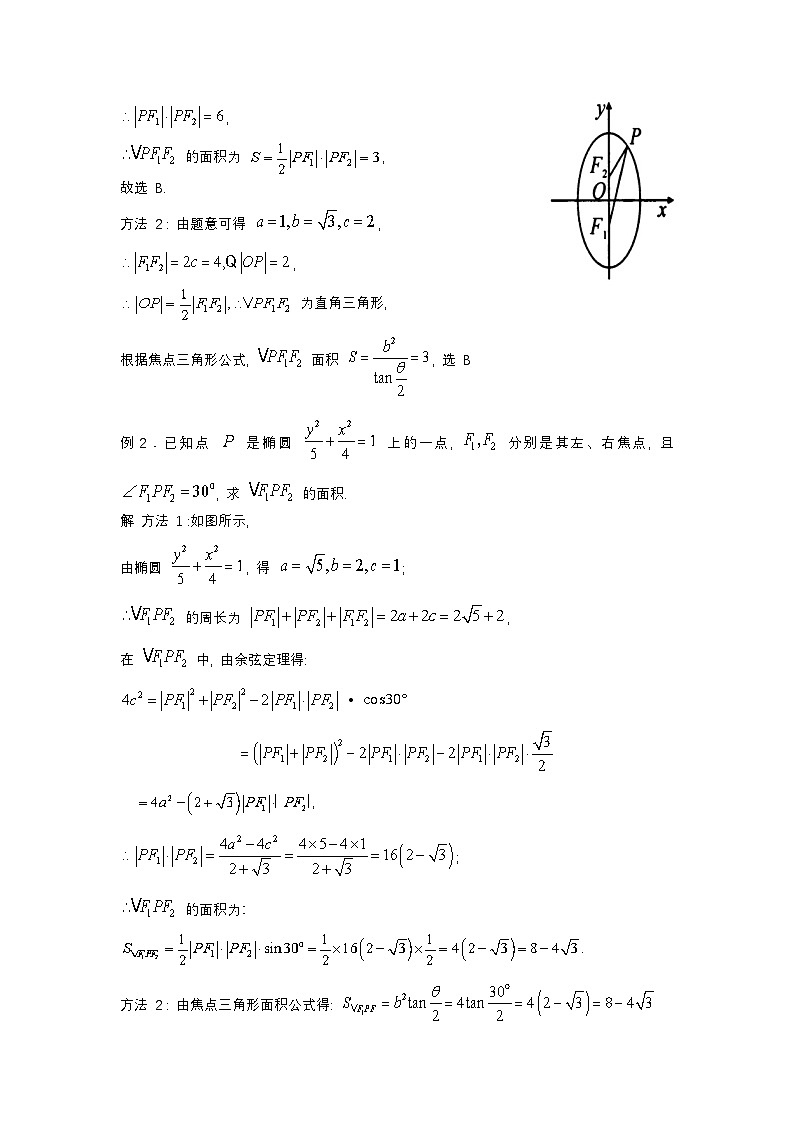 ∴|PF₁|·|PF₂|=6,
∴VPF₁F₂ 的面积为 S=1/2|PF₁|·|PF₂|=3,
故选 B.
方法 2: 由题意可得 a=1,b=√3,c=2,
∴|F₁F₂|=2c=4,Q|OP|=2,
∴|OP|=1/2|F₁F₂|,∴VPF₁F₂ 为直角三角形,
根据焦点三角形公式, VPF₁F₂ 面积 S=b²/tan(θ/2)=3, 选 B
y
P
F₂
O
x
F₁
例 2.已知点 P 是椭圆 y²/5+x²/4=1 上的一点, F₁,F₂ 分别是其左、右焦点, 且
∠F₁PF₂=30°, 求 VF₁PF₂ 的面积.
解 方法 1:如图所示,
由椭圆 y²/5+x²/4=1, 得 a=√5,b=2,c=1;
∴VF₁PF₂ 的周长为 |PF₁|+|PF₂|+|F₁F₂|=2a+2c=2√5+2,
在 VF₁PF₂ 中, 由余弦定理得:
4c²=|PF₁|²+|PF₂|²-2|PF₁|·|PF₂| • cos30°
=(|PF₁|+|PF₂|)²-2|PF₁|·|PF₂|-2|PF₁|·|PF₂|·√3/2
=4a²-(2+√3)|PF₁|·|PF₂|,
∴|PF₁|·|PF₂|=(4a²-4c²)/(2+√3)=(4×5-4×1)/(2+√3)=16(2-√3);
∴VF₁PF₂ 的面积为:
S_VF₁PF₂=1/2|PF₁|·|PF₂|·sin30°=1/2×16(2-√3)×1/2=4(2-√3)=8-4√3.
方法 2: 由焦点三角形面积公式得: S_VF₁PF=b²tan(θ/2)=4tan(30°/2)=4(2-√3)=8-4√3